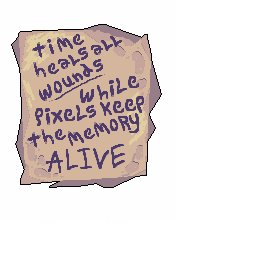 time
heals all
wounds
while
pixels keep
the memory
ALIVE